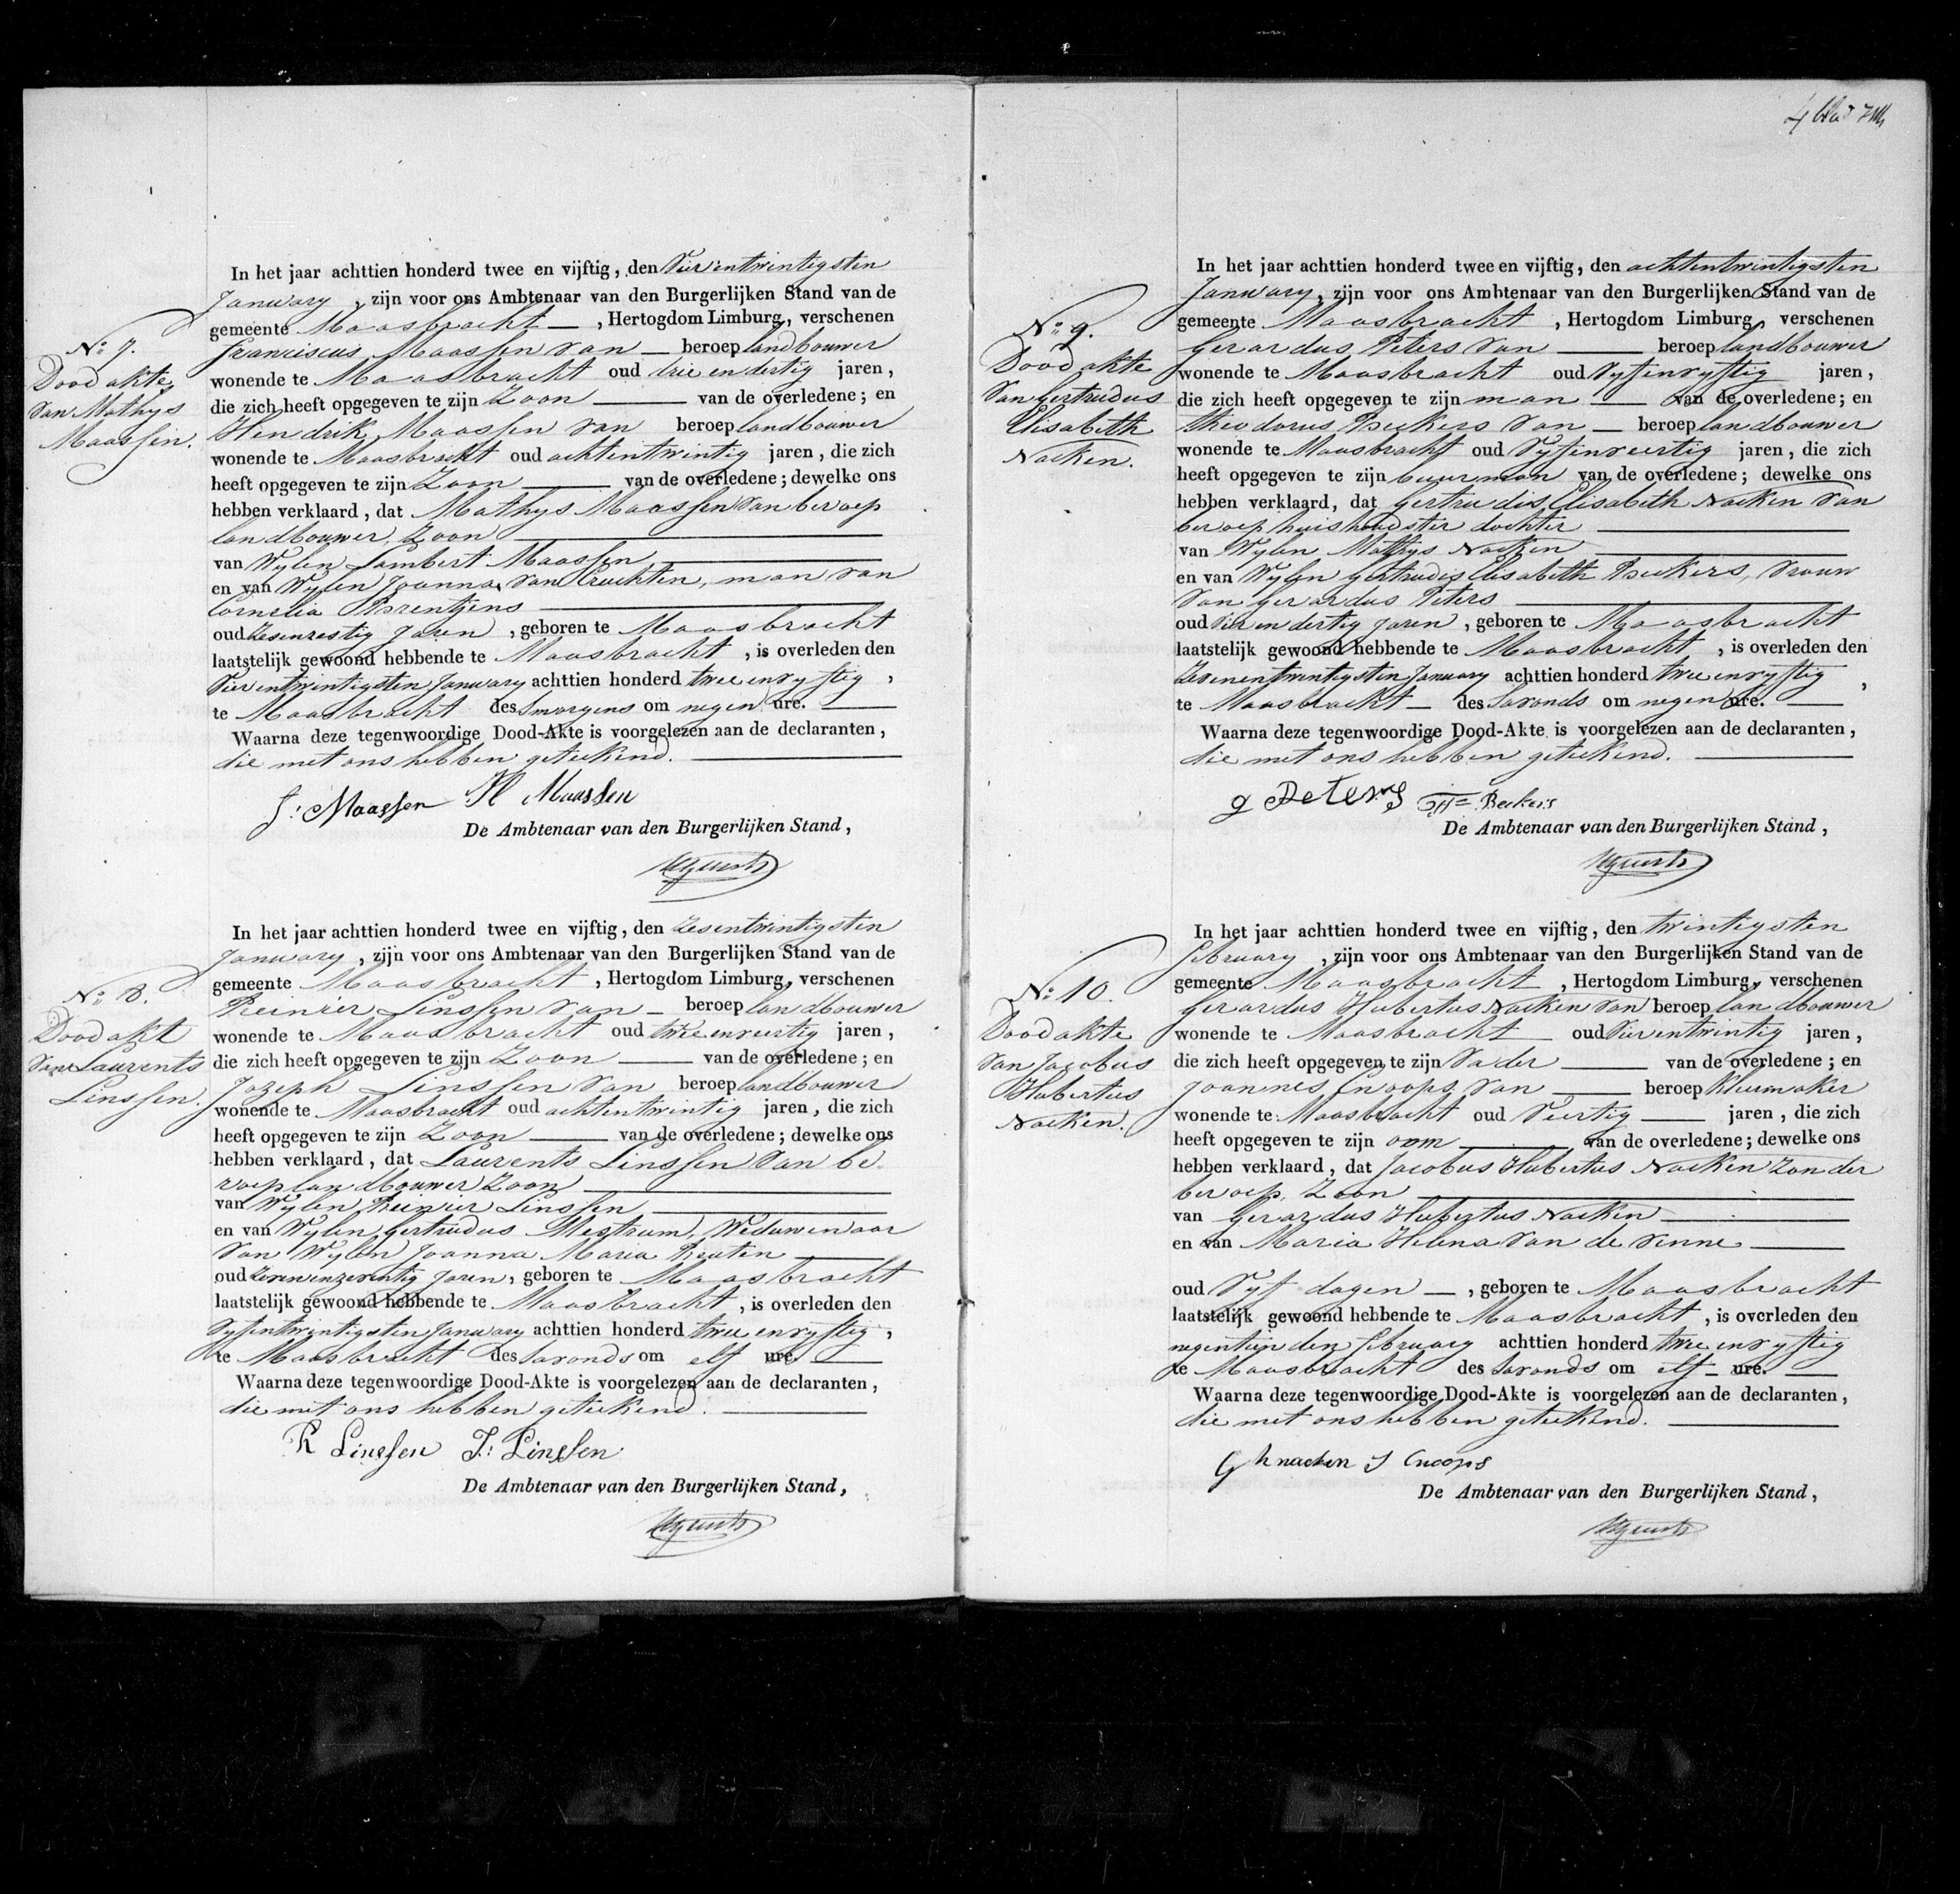 In het jaar achttien honderd twee en vijftig, den Vierentwintigsten
January, zijn voor ons Ambtenaar van den Burgerlijken Stand van de
gemeente Maasbracht, Hertogdom Limburg, verschenen
Franciscus Maassen van beroep landbouwer
wonende te Maasbracht oud drie en dertig jaren,
die zich heeft opgegeven te zijn Zoon van de overledene; en
Hendrik Maassen van beroep landbouwer
wonende te Maasbracht oud achtentwintig jaren, die zich
heeft opgegeven te zijn Zoon van de overledene; dewelke ons
hebben verklaard, dat Mathys Maassen van beroep
landbouwer, Zoon
van Wylen Lambert Maassen
en van Wylen Joanna van Cruchten, man van
Cornelia Brentjens
oud Zesenzestig Jaren, geboren te Maasbracht
laatstelijk gewoond hebbende te Maasbracht, is overleden den
Vierentwintigsten January achttien honderd twee en vyftig,
te Maasbracht des Smorgens om negen ure.
Waarna deze tegenwoordige Dood-Akte is voorgelezen aan de declaranten,
die met ons hebben geteekend.
F: Maassen H Maassen
De Ambtenaar van den Burgerlijken Stand,
No: 7.
Dood akte
van Mathys
Maassen.
In het jaar achttien honderd twee en vijftig, den Zesentwintigsten
January, zijn voor ons Ambtenaar van den Burgerlijken Stand van de
gemeente Maasbracht, Hertogdom Limburg, verschenen
Reinier Linssen van beroep landbouwer
wonende te Maasbracht oud twee en veertig jaren,
die zich heeft opgegeven te zijn Zoon van de overledene; en
Jozeph Linssen van beroep landbouwer
wonende te Maasbracht oud achtentwintig jaren, die zich
heeft opgegeven te zijn Zoon van de overledene; dewelke ons
hebben verklaard, dat Laurents Linssen van be-
roep landbouwer Zoon
van Wylen Reinier Linssen
en van Wylen Gertrudus Mestrum, Weduwenaar
van Wylen Joanna Maria Reuten
oud Zevenenzeventig Jaren, geboren te Maasbracht
laatstelijk gewoond hebbende te Maasbracht, is overleden den
vyfentwintigsten January achttien honderd twee en vyftig,
te Maasbracht des Savonds om elf ure.
Waarna deze tegenwoordige Dood-Akte is voorgelezen aan de declaranten,
die met ons hebben geteekend.
R Linssen J: Linssen
De Ambtenaar van den Burgerlijken Stand,
No: 8.
Dood akt
van Laurents
Linssen.
4
In het jaar achttien honderd twee en vijftig, den achtentwintigsten
January, zijn voor ons Ambtenaar van den Burgerlijken Stand van de
gemeente Maasbracht, Hertogdom Limburg, verschenen
Gerardus Peters van beroep landbouwer
wonende te Maasbracht oud Vyfenvyftig jaren,
die zich heeft opgegeven te zijn man van de overledene; en
Theodorus Beckers van beroep landbouwer
wonende te Maasbracht oud Vyfenveertig jaren, die zich
heeft opgegeven te zijn buurman van de overledene; dewelke ons
hebben verklaard, dat Gertrudis Elisabeth Nacken van
beroep huishoudster dochter
van Wylen Mathys Nacken
en van Wylen Gertrudis Elisabeth Beckers, Vrouw
van Gerardus Peters
oud Vier en dertig Jaren, geboren te Maasbracht
laatstelijk gewoond hebbende te Maasbracht, is overleden den
Zevenentwintigsten January achttien honderd twee en vyftig,
te Maasbracht des Savonds om negen ure.
Waarna deze tegenwoordige Dood-Akte is voorgelezen aan de declaranten,
die met ons hebben geteekend.
g Peters Th= Beckers
De Ambtenaar van den Burgerlijken Stand,
No: 9.
Dood akte
van Gertrudus
Elisabeth
Nacken.
In het jaar achttien honderd twee en vijftig, den twintigsten
february, zijn voor ons Ambtenaar van den Burgerlijken Stand van de
gemeente Maasbracht, Hertogdom Limburg, verschenen
Gerardus Hubertus Nacken van beroep landbouwer
wonende te Maasbracht oud Vierentwintig jaren,
die zich heeft opgegeven te zijn Vader van de overledene; en
Joannes Cnoops van beroep kleermaker
wonende te Maasbracht oud Veertig jaren, die zich
heeft opgegeven te zijn oom van de overledene; dewelke ons
hebben verklaard, dat Jacobus Hubertus Nacken Zonder
beroep, Zoon
van Gerardus Hubertus Nacken
en van Maria Helena van de Venne
oud Vyf dagen, geboren te Maasbracht
laatstelijk gewoond hebbende te Maasbracht, is overleden den
negentienden february achttien honderd twee en vyftig
te Maasbracht des Savonds om elf ure.
Waarna deze tegenwoordige Dood-Akte is voorgelezen aan de declaranten,
die met ons hebben geteekend.
G h nacken J Cnoops
De Ambtenaar van den Burgerlijken Stand,
No: 10.
Dood akte
van Jacobus
Hubertus
Nacken.